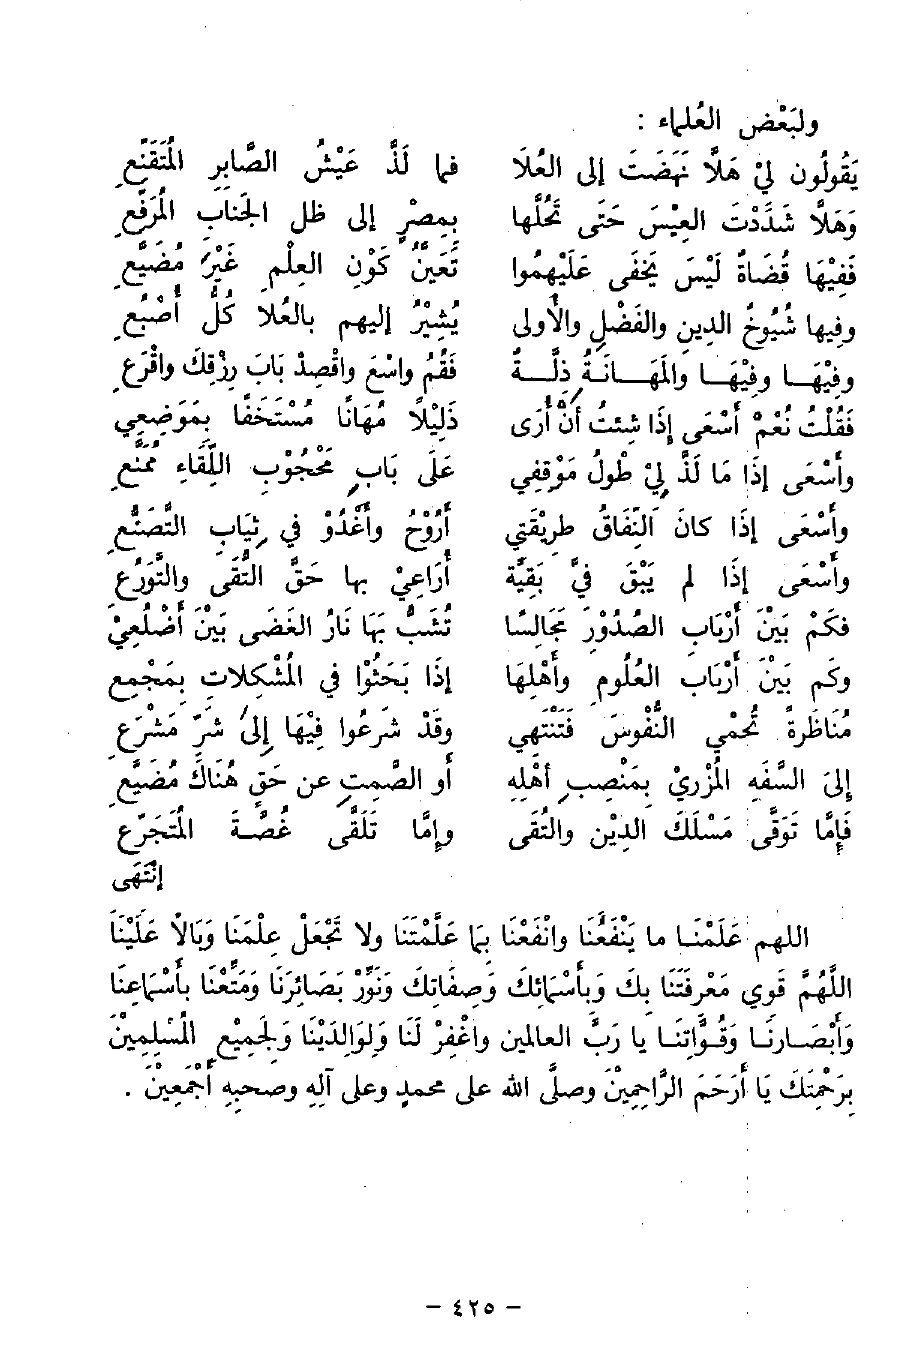 ولبَعْضِ العُلماء :
يَقُولُون لِيْ هَلَّا نَهَضتَ إلى العُلَا فما لَذَّ عَيْشُ الصَّابِرِ المُتَقَنِّعِ
وَهَلاَّ شَدَدْتَ العِيْسَ حَتى تَحُلَّها بِمِصْرٍ إلى ظلِ الجَنابِ المُرَفَّعِ
فَفِيْهَا قُضَاةٌ لَيْسَ يَخفَى عَلَيْهِمُوا تَعَينُّ كَوْنِ العِلْمِ غَيْرَ مُضَيَّعِ
وفيها شُيُوخُ الدينِ والفَضْلِ والأولى يُشِيْرُ إليهم بالعُلا كُلُّ أصْبُعِ
وفِيْهَا وفِيْهَا والمَهَانَةُ ذِلَّةٌ فَقُمْ واسْعَ واقْصِدْ بَابَ رِزْقِكَ واقْرَعِ
فَقُلْتُ نُعَمْ أَسْعَى إذَا شِئتُ أنْ أُرَى ذَلِيْلاً مُهَانًا مُسْتَخَفًا بِمَوضِعِي
وأسْعَى إذَا مَا لَذَّ لِيْ طُولُ مَوْقِفِي عَلَى بَابٍ مَحْجُوْبِ اللِّقَاءِ مُمَنَّعِ
وأسْعَى إذَا كانَ النِّفَاقُ طَرِيقَتي أرُوْحُ وأغْدُوْ في ثِيَابِ التَّصَنُّعِ
وأسْعَى إذَا لم يَبْقَ فيَّ بَقِيَّة أُرَاعِيْ بها حَقَّ التُّقَى والتَّوَرُّعِ
فكَمْ بَيْنَ أرْبَابِ الصُدُوْرَ مَجَالِسًا تُشَبُّ بِهَا نَارُ الغَضَى بَيْنَ أضْلُعِيْ
وكَم بَيْنَ أرْبَابِ العُلُومِ وأهْلِهَا إذَا بَحَثُوْا في المُشْكلاتِ بِمَجْمِعِ
مُنَاظَرةً تُحْمِي النُّفُوسَ فَتَنْتَهِي وقَدْ شَرَعُوا فِيْهَا إلىَ شَرِّ مَشْرَعِ
إلىَ السَّفَهِ المُزْرِيْ بِمَنْصِبِ أهْلِهِ أو الصَّمتِ عن حَقٍ هُنَاكَ مُضَيَّعِ
فَإمَّا تَوَقَّى مَسْلَكَ الدِيْنِ والتُقَى وإمَّا تَلَقَّى غُصَّةَ المُتَجَرِّعِ
إنْتَهَى
اللهم عَلِّمْنَا ما يَنْفَعُنَا وانْفَعْنَا بِمَا عَلَّمْتَنَا ولا تَجْعَلْ عِلْمَنَا وَبَالاً عَلَيْنَا
اللَّهُمَّ قَوِي مَعْرِفَتَنَا بِكَ وَبأسْمَائِكَ وَصِفَاتِكَ وَنَوِّرْ بَصَائِرَنَا وَمَتِّعْنَا بأسْمَاعِنَا
وَأبْصَارِنَا وَقُوَّاتِنَا يا رَبَّ العالمين واغْفِرْ لَنَا وَلِوَالِدَيْنَا وَلجَمِيْعِ المُسْلِمِيْنَ
بِرَحْمَتِكَ يَا أرْحَمَ الرَّاحِمِيْنَ وصلَّى الله على محمدٍ وعلى آلِهِ وصحبِهِ أجْمَعِيْنَ .
– ٤٢٥ –